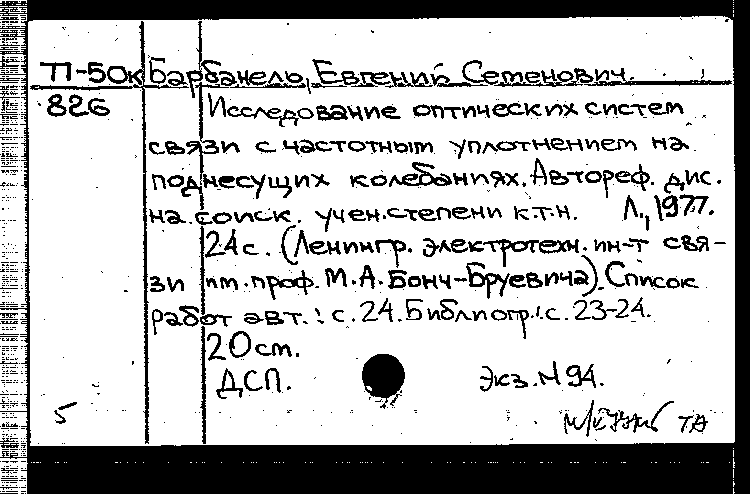 П-50к Барбанель, Евгений Семенович.
826 Исследование оптических систем
связи с частотным уплотнением на
поднесущих колебаниях. Автореф. дис.
на соиск. учен. степени к.т.н. Л., 1977.
24 с. (Ленингр. электротехн. ин-т свя-
зи им. проф. М.А. Бонч-Бруевича). Список
работ авт.: с. 24. Библиогр.: с. 23-24.
20 cm.
ДСП. Экз. N 94.
5 ТА